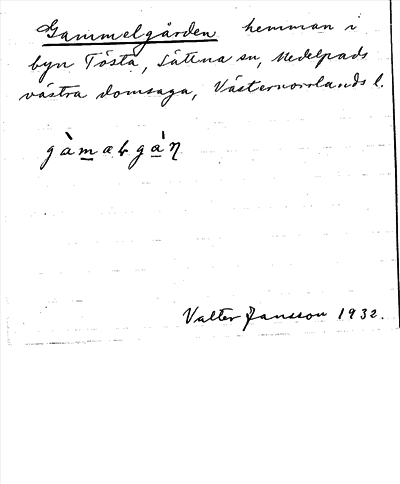 Gammelgården hemman i
byn Tösta, Sättna sn, Medelpads
västra domsaga, Västernorrlands l.
gàmæLgán
Valter Jansson 1932.